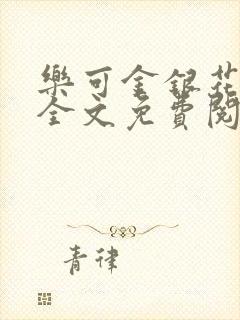 樂可金銀花
全文免費閱
青律